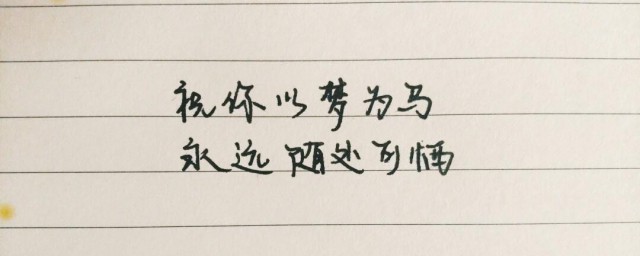 祝你以梦为马
永远随处可栖